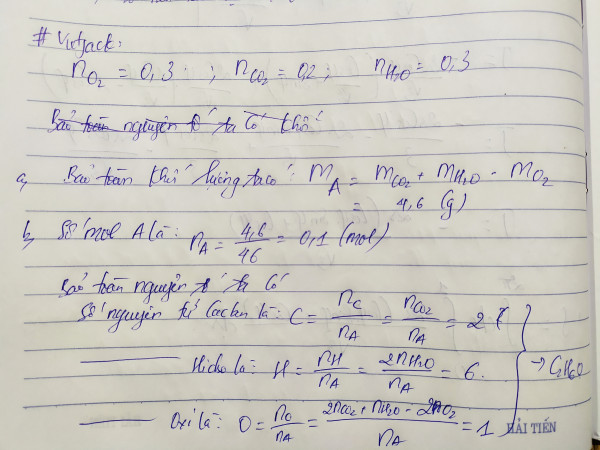 # Vietjack:
nO2 = 0,3 ; nCO2 = 0,2 ; nH2O = 0,3
Bảo toàn nguyên tố ta có khối
a, Bảo toàn khối lượng ta có: mA = mCO2 + mH2O - mO2
= 4,6 (g)
b, Số mol A là: nA = 4,6/46 = 0,1 (mol)
Bảo toàn nguyên tố ta có
Số nguyên tử Cacbon là: C = nC/nA = nCO2/nA = 2
Hidro là: H = nH/nA = 2nH2O/nA = 6. → C2H6O
Oxi là: O = nO/nA = 2nCO2 + nH2O - 2nO2/nA = 1
HẢI TIẾN